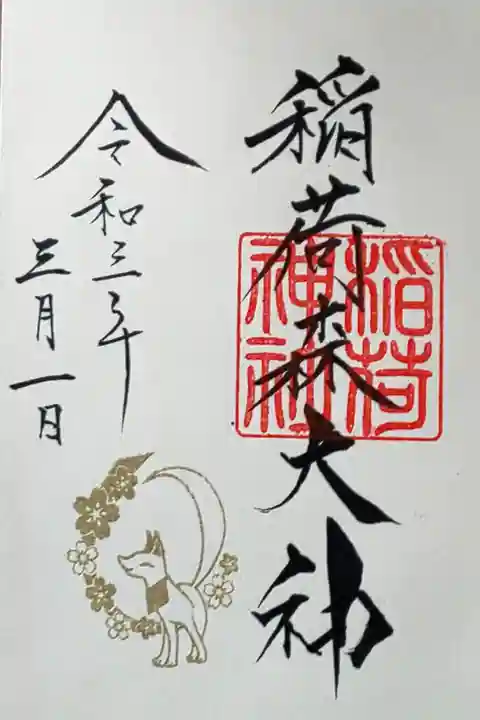 稲荷森大神
稲荷
神社
令和三年
三月一日